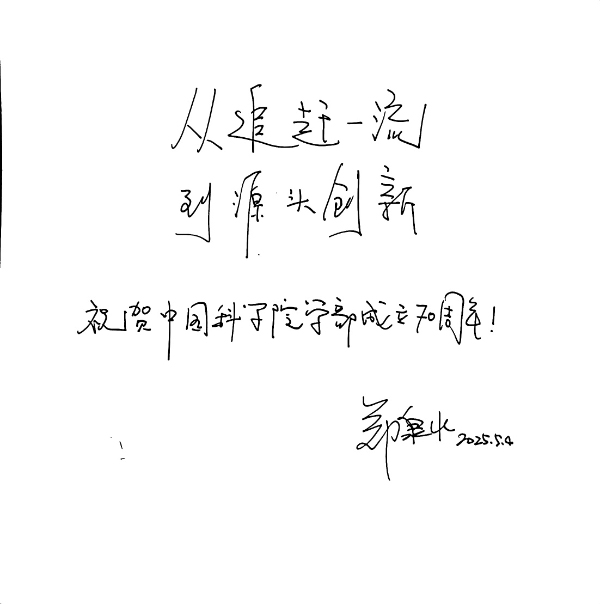 从追赶一流
到源头创新
祝贺中国科学院学部成立70周年!
郑泉水 2025.5.4